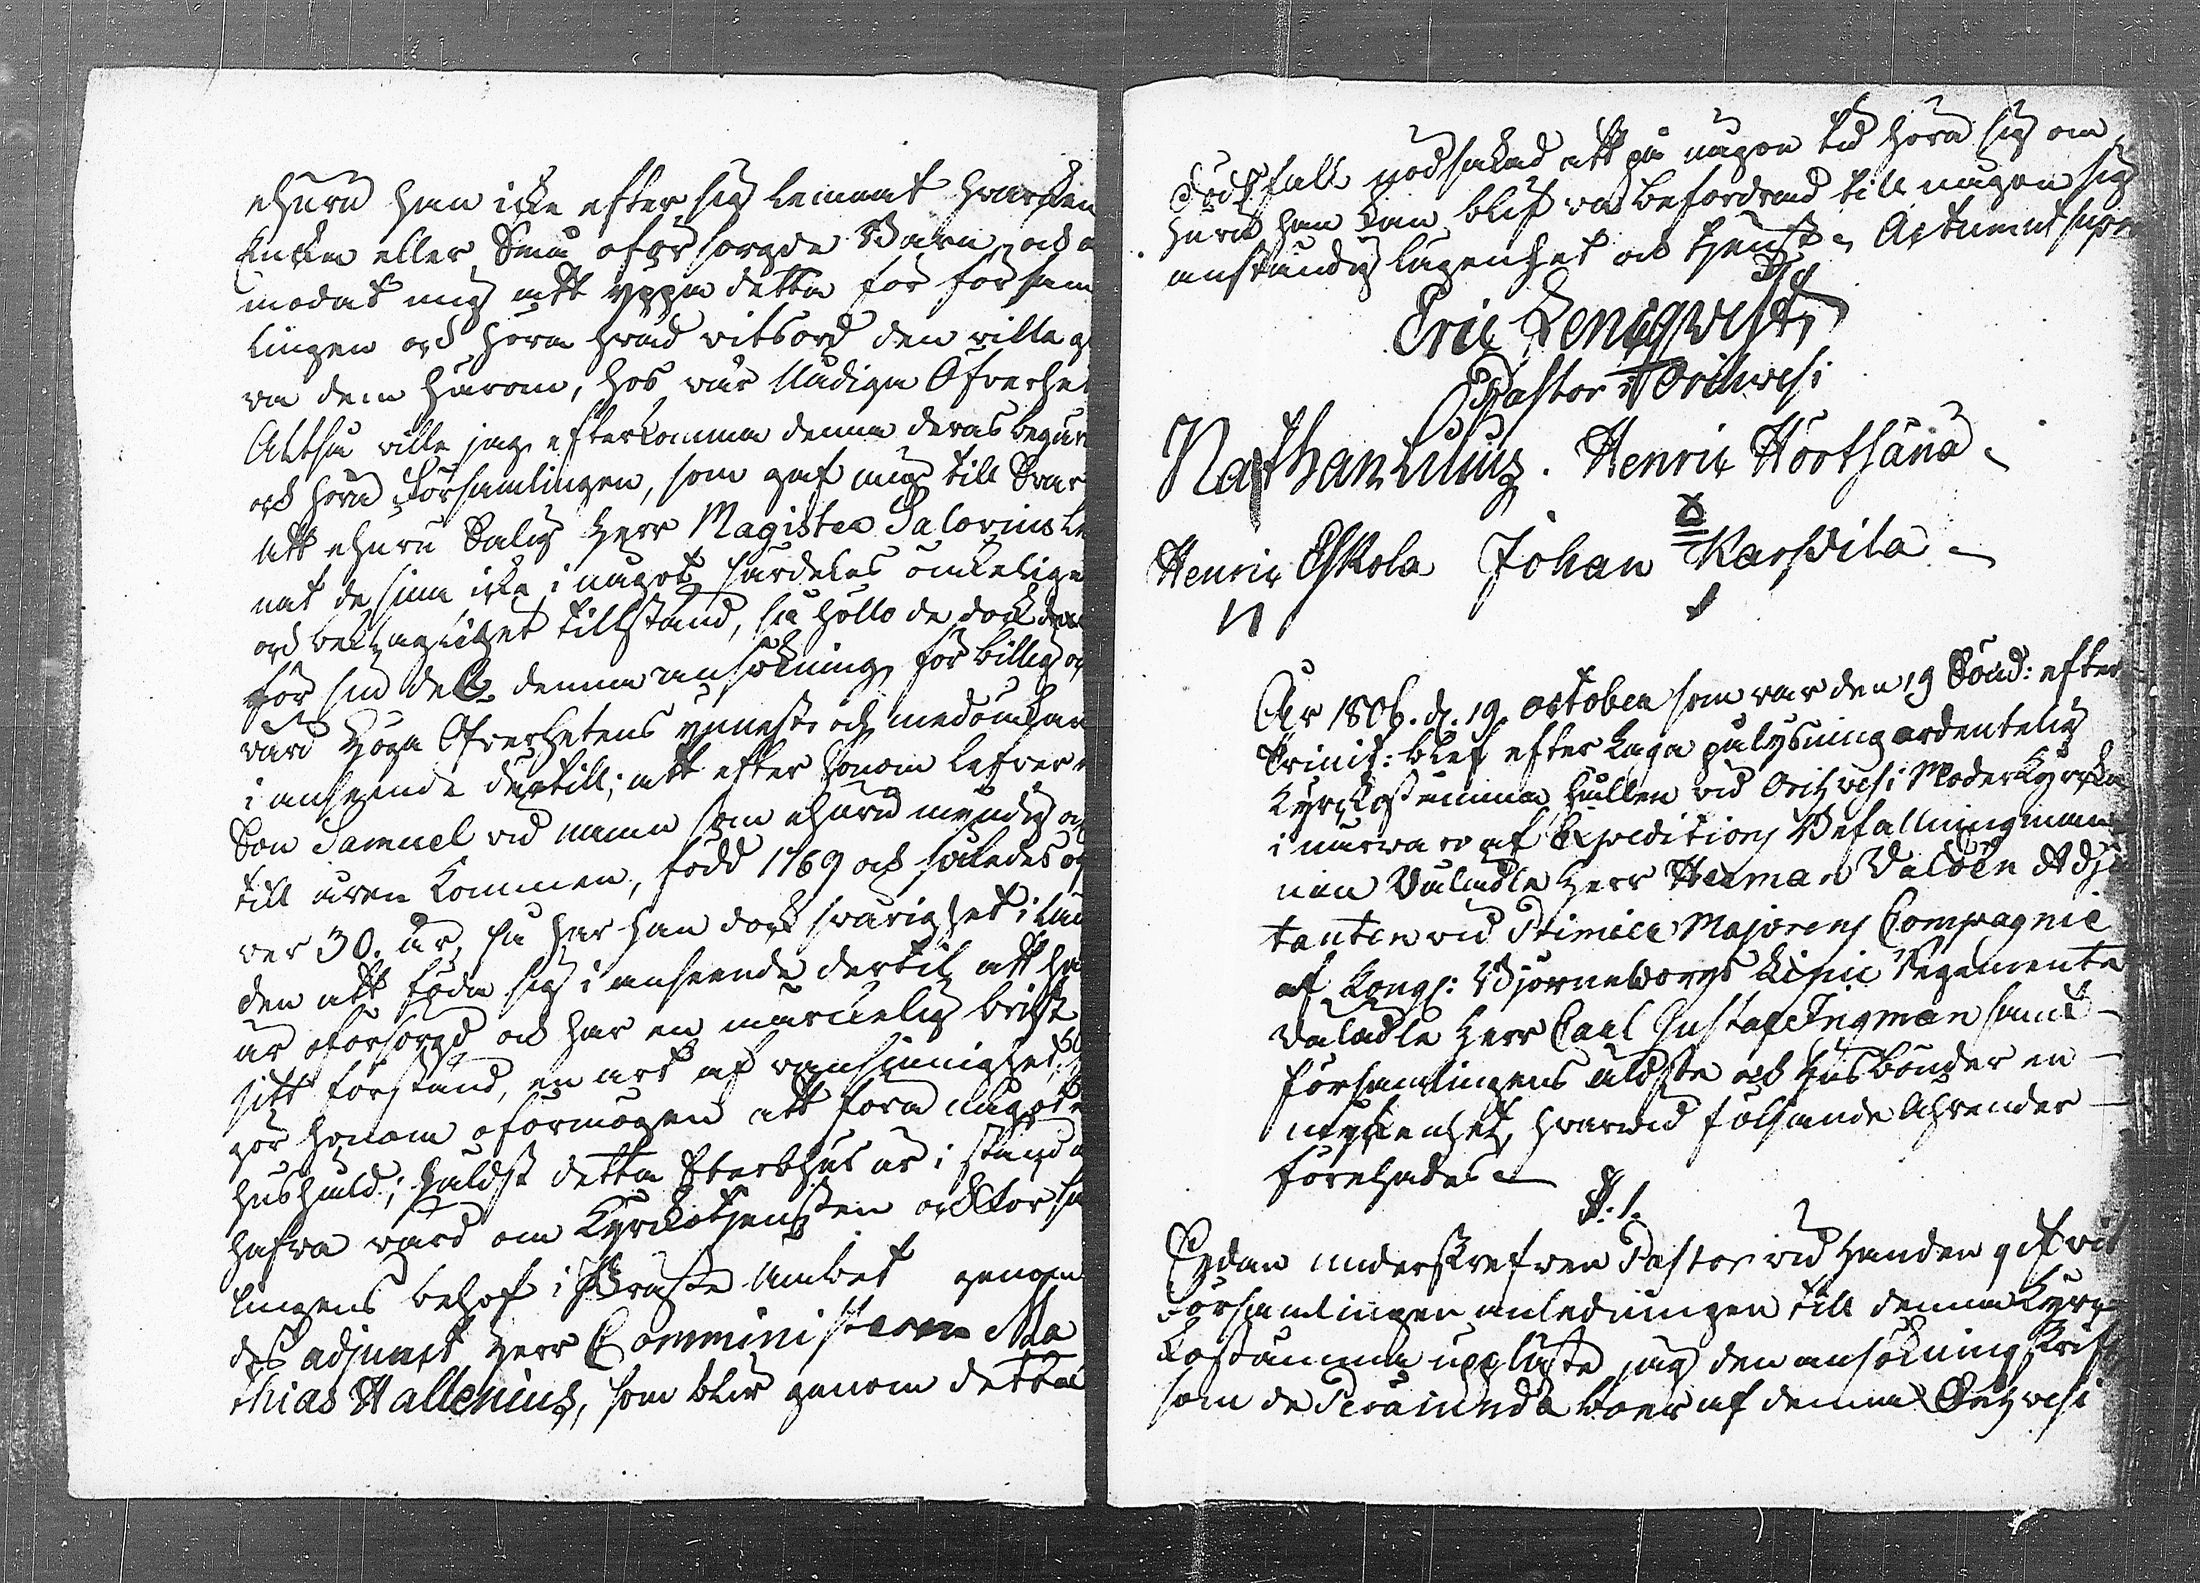 ehuru han icke efter sig lemnat hvarken
Enka eller Små oförsörgde Barn, och a
modat mig att yppa detta för försam
lingen och höra hvad vitsord den ville g
va dem härom, hos vår Nådiga Öfverhet
Alltså ville jag efterkomma denna deras begär
och höra Församlingen, som gaf mig till Svar
att ehuru Salig Herr Magister Salovius le
nat de sina icke i något särdeles ömkeligt
och beklagligt tillstånd, så höllo de dock den
för sin del denna ansökning för billig oc
värd Höga Öfverhetens ynnest och medömkan
i anseende dertill; att efter honom lefver e
Son Samuel vid namn som ehuru myndig oc
till åren kommen, född 1769 och således öf
ver 30. år, så har han dock svårighet i län
den att föda sig i anseende dertil att ha
är oförsörgd och har en märckelig brist
sitt förstånd, en art af vansinnighet, so
gör honom oförmögen att föra något
hushåld; häldst detta Sterbhus är i stånd a
hafva vård om Kyrckotjensten och försa
lingens behof i Präste Ämbet genom
dess adjunct Herr Comministern Ma
thias Hallenius, som blir genom detta
Dödsfall nödsakad att på någon tid höra sig om
huru han kan blifva befordrad till någon sig
anständig lägenhet och tjenst. Actum ut supra
Eric Lencqvist,
Pastor i Orihvesi
Nathan Lilius. Henric Hörtsänä
Henric Eskola Johan Karppila
År 1806. d. 19. October som var den 19 Sönd: efter
Trinit: blef efter laga pålysning ordentelig
Kyrckostämma hållen vid Orihvesi Moderkyrcka
i närvaro af Expeditions Befallningsman
nen Välädle Herr Herman Daloën Adju
tanten vid Primier Majorens Compagnie
af Kongl: Björneborgs Läns Regemente
Välädle Herr Carl Gustaf Ingman samt
församlingens äldste och Husbönder en
myckenhet, hvarvid följande Ährender
förehades
§. 1.
Sedan underskrefven Pastor vid handen gifvit
Församlingen anledningen till denna Kyrc
kostämma upläste jag den ansökning skrift
som de Teräinmda boer af denna Orihvesi